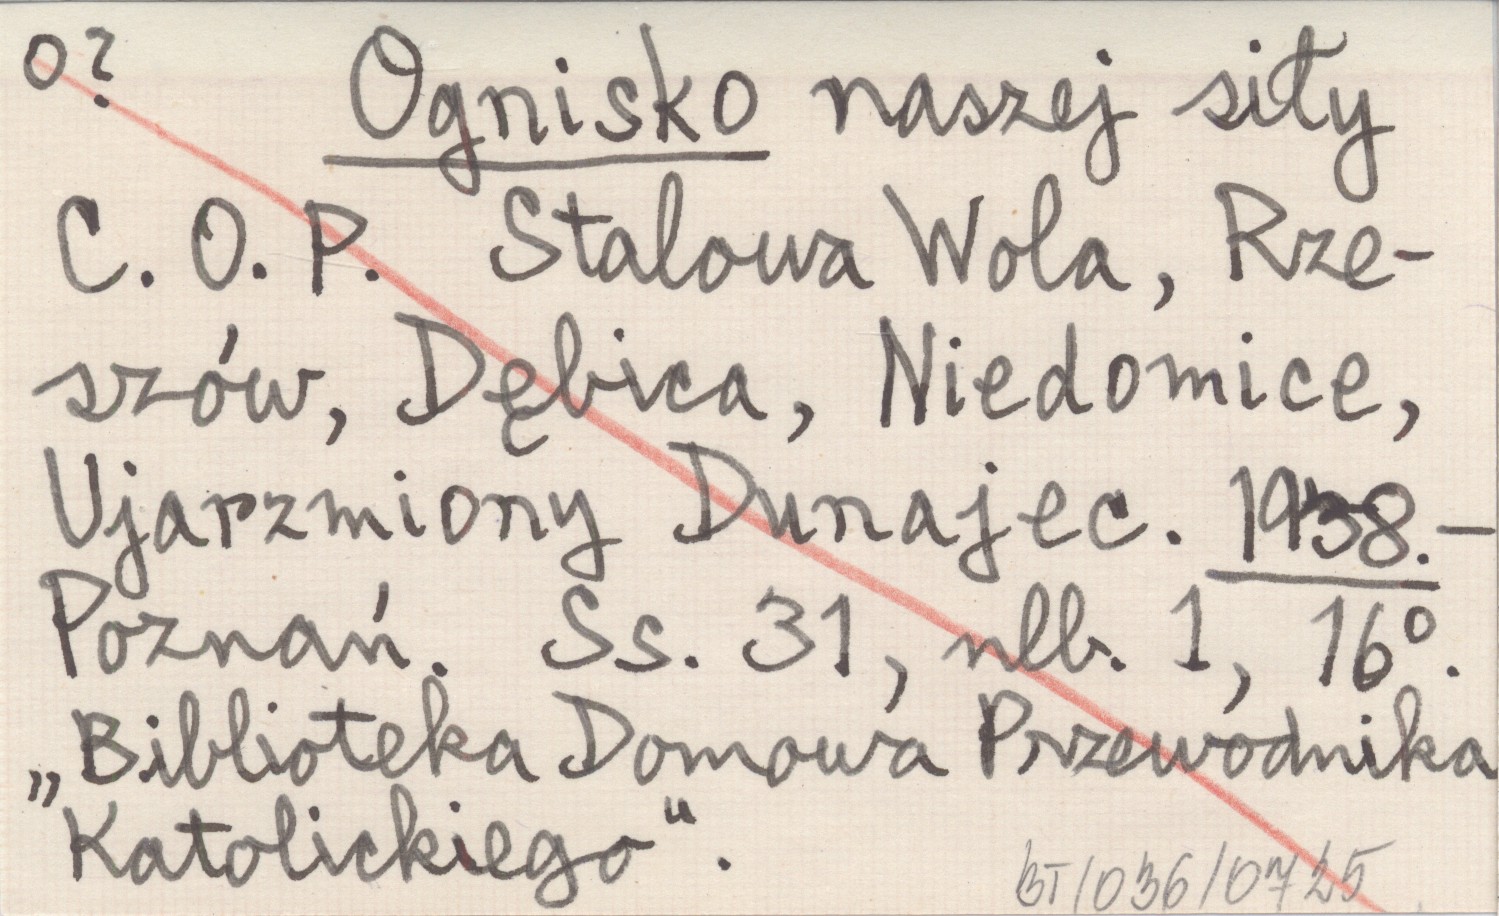 o?
Ognisko naszej siły
C. O. P. Stalowa Wola, Rze-
szów, Dębica, Niedomice,
Ujarzmiony Dunajec. 1938.-
Poznań. Ss. 31, nlb. 1, 16°.
„Biblioteka Domowa Przewodnika
Katolickiego".
BT/036/0725